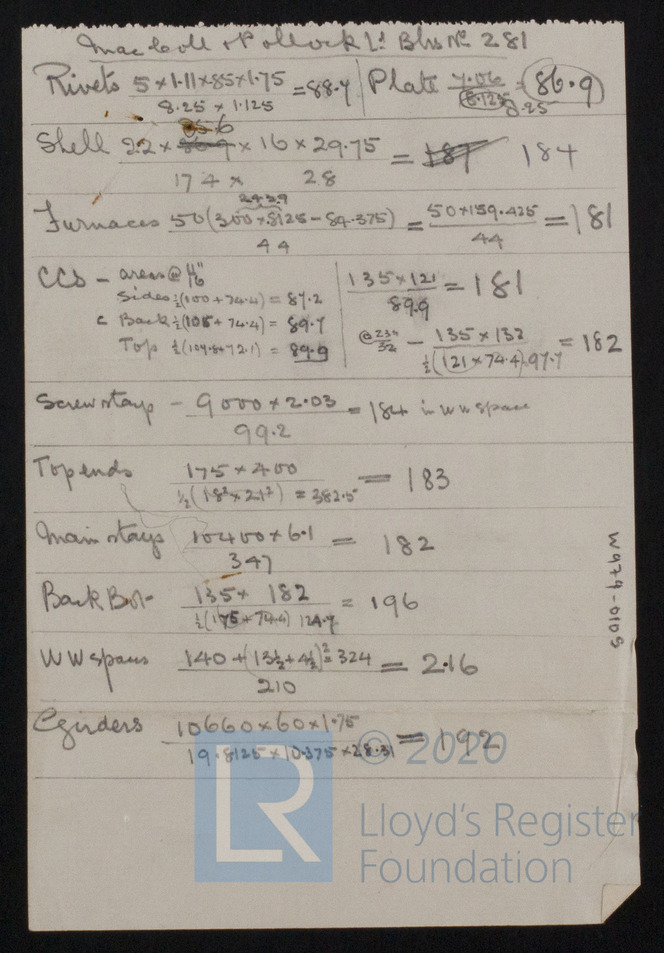 MacColl & Pollock Ld Blrs No 281
Rivets 5 × 1.11 × 85 × 1.75 / 8.25 × 1.125 = 88.4 | Plate 7.06 / 8.125 8.25 = 86.9
Shell 22 × 86.9 85.6 × 16 × 29.75 / 174 × 28 = 187 184
Furnaces 50(300 × .8125 - 84.375) / 44 = 50 × 159.425 / 44 = 181
CCs - areas @ 11/16"
Sides ½(100 + 74.4) = 87.2
C Back ½(105 + 74.4) = 89.7
Top ½(107.8 + 72.1) = 89.9
135 × 121 / 89.9 = 181
@ 23/32" - 135 × 132 / ½(121 × 74.4) 97.7 = 182
Screw stays - 9000 × 2.03 / 99.2 = 184 in WW space
Top ends 175 × 400 / ½(18² × 21²) = 382.5 = 183
Main stays 10400 × 6.1 / 347 = 182
Back Bot- 135 × 182 / ½(175 + 74.4) 124.7 = 196
WW spaces 140 + (13½ + 4½)² = 324 / 210 = 216
C girders 10660 × 60 × 1.75 / 19.8125 × 10.375 × 28.31 = 192
W979-0109
© 2020
LR
Lloyd's Register
Foundation